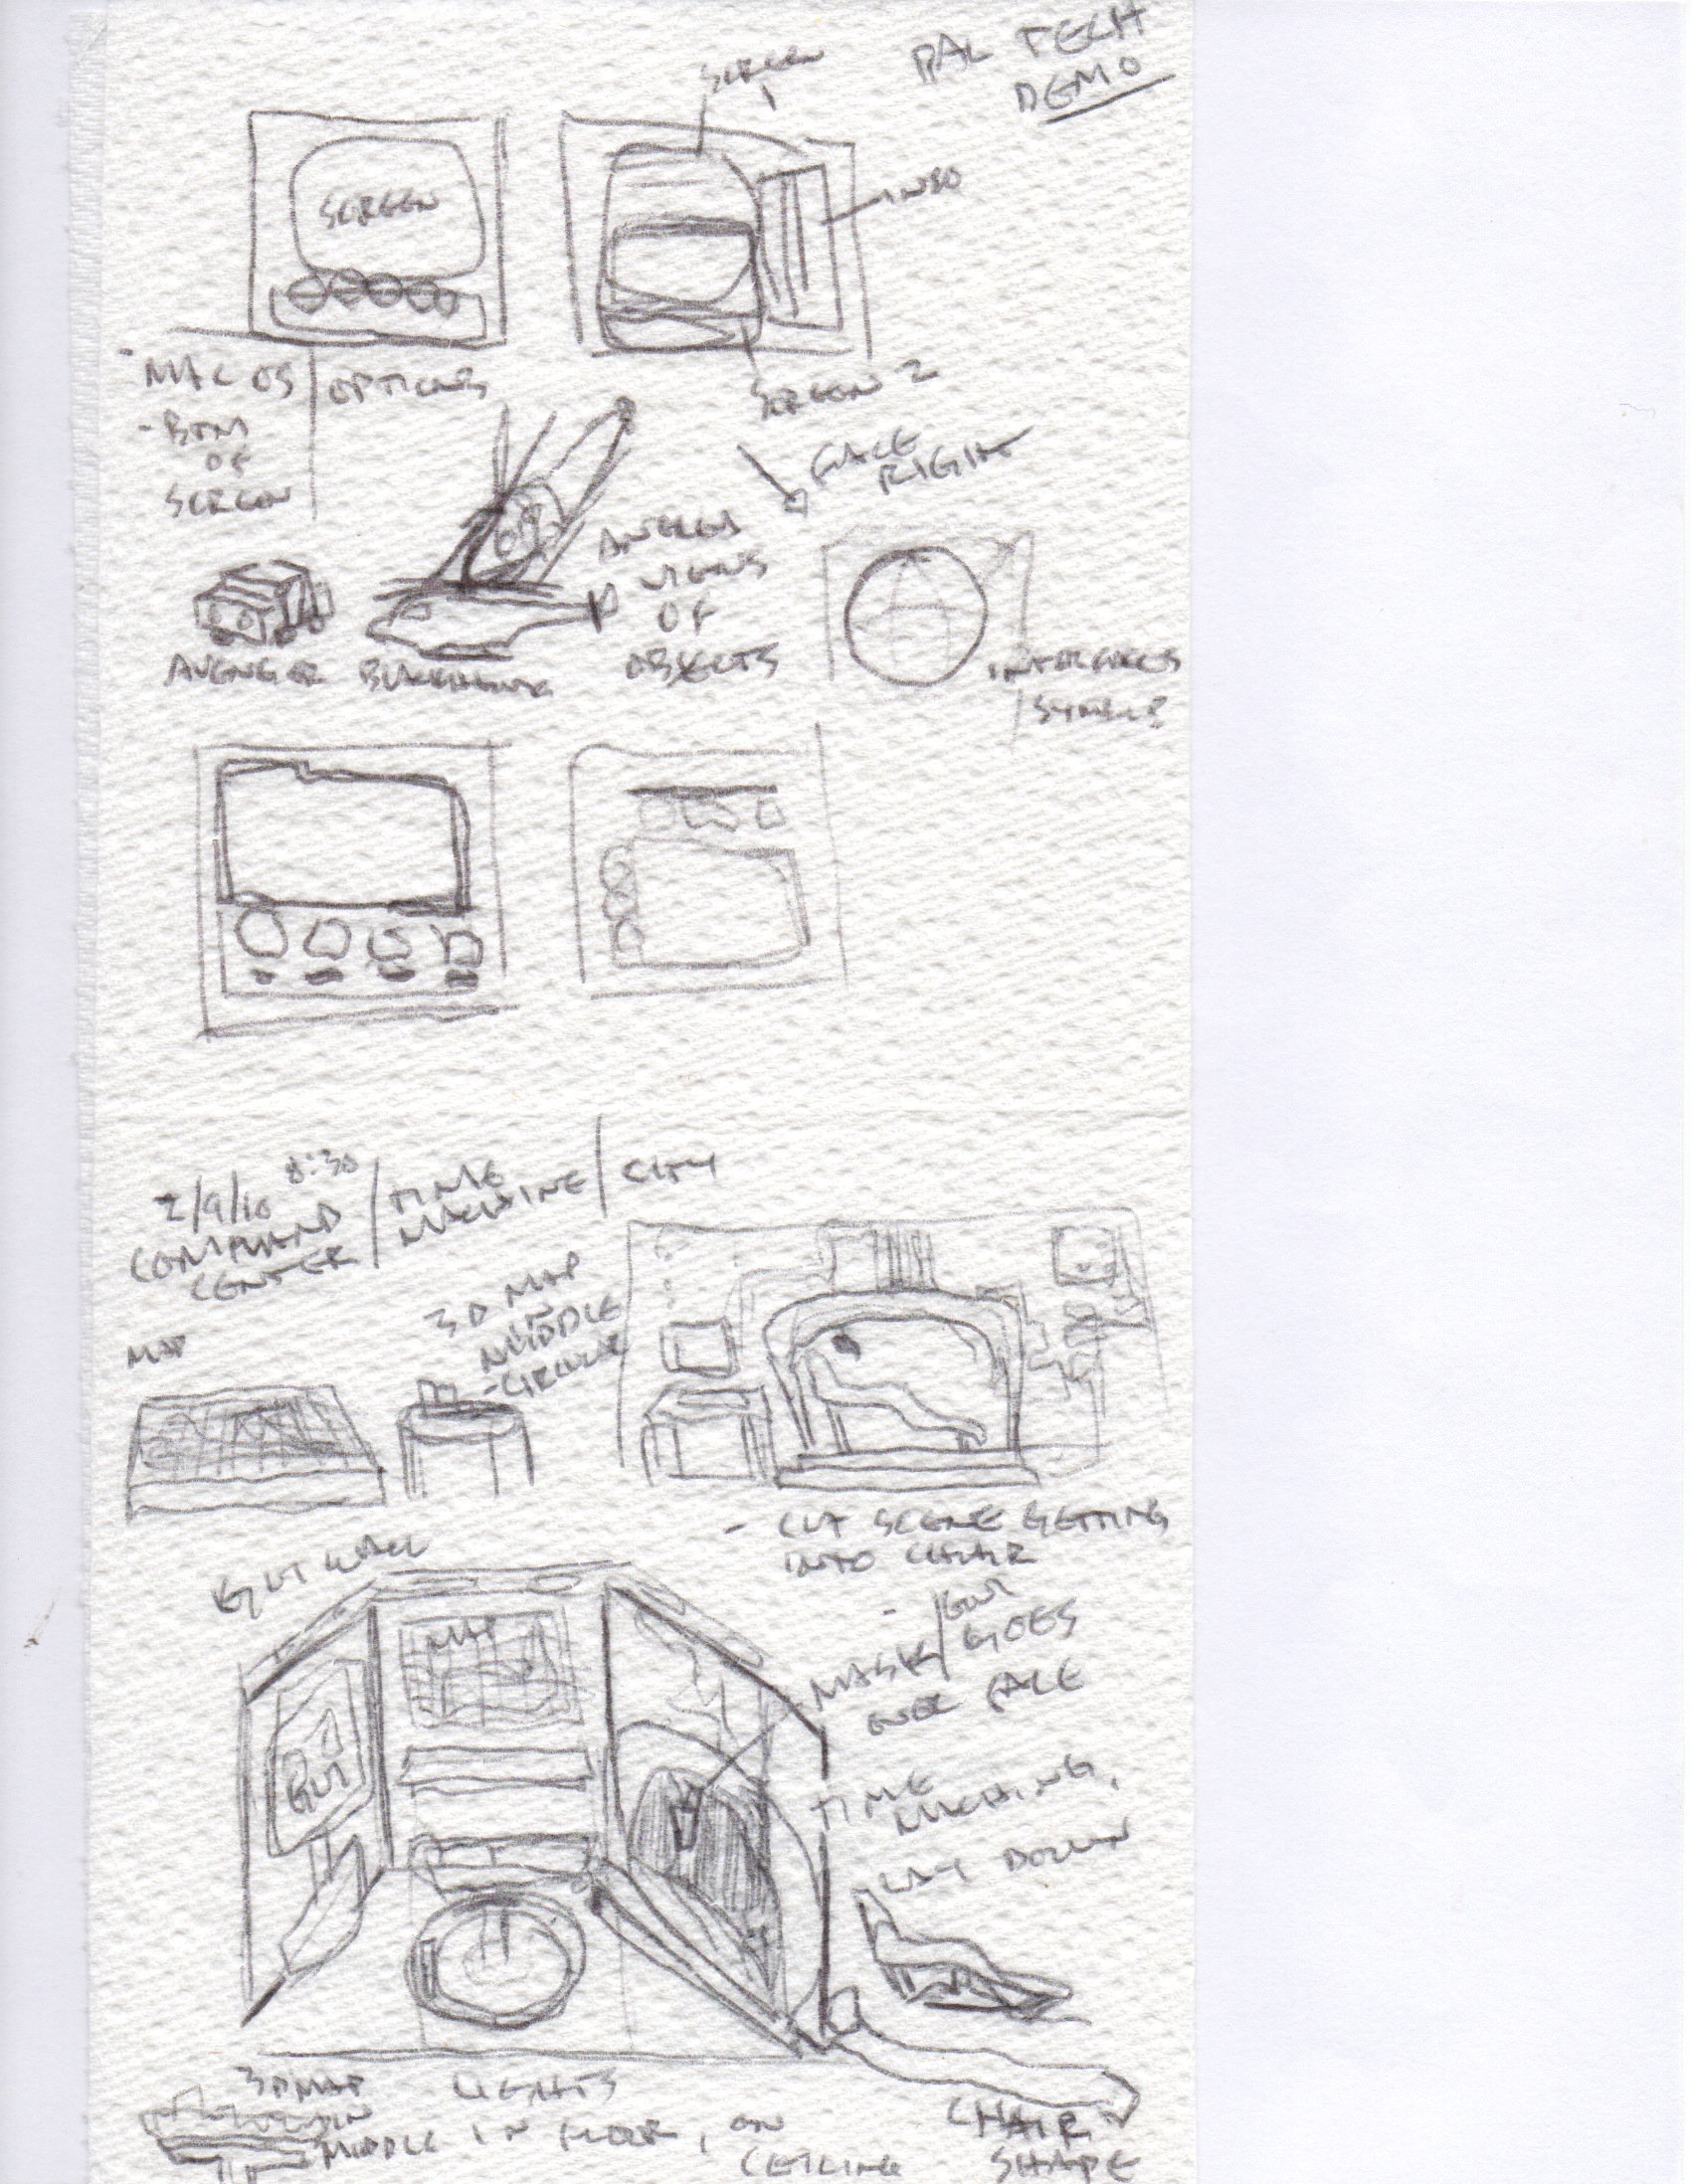 PAL TECH
DEMO
SCREEN
1
SCREEN
INFO
SCREEN 2
- MAC OS / OPTIONS
- BTM
OF
SCREEN
FACE
RIGHT
ANGLED
VIEWS
OF
OBJECTS
AVENGER
BLACKHAWK
INTERFACES
/ SYMBOLS
2/9/10 8:30
COMMAND
CENTER / TIME
MACHINE / CITY
MAP
3D MAP
IN
MIDDLE
- CIRCULAR
- CUT SCENE GETTING
INTO CHAIR
GUI WALL
MAP
GUI
- MASK / GUI
GOES
OVER FACE
TIME
MACHINE,
LAY DOWN
3D MAP
IN
MIDDLE
LIGHTS
IN FLOOR, ON
CEILING
CHAIR
SHAPE